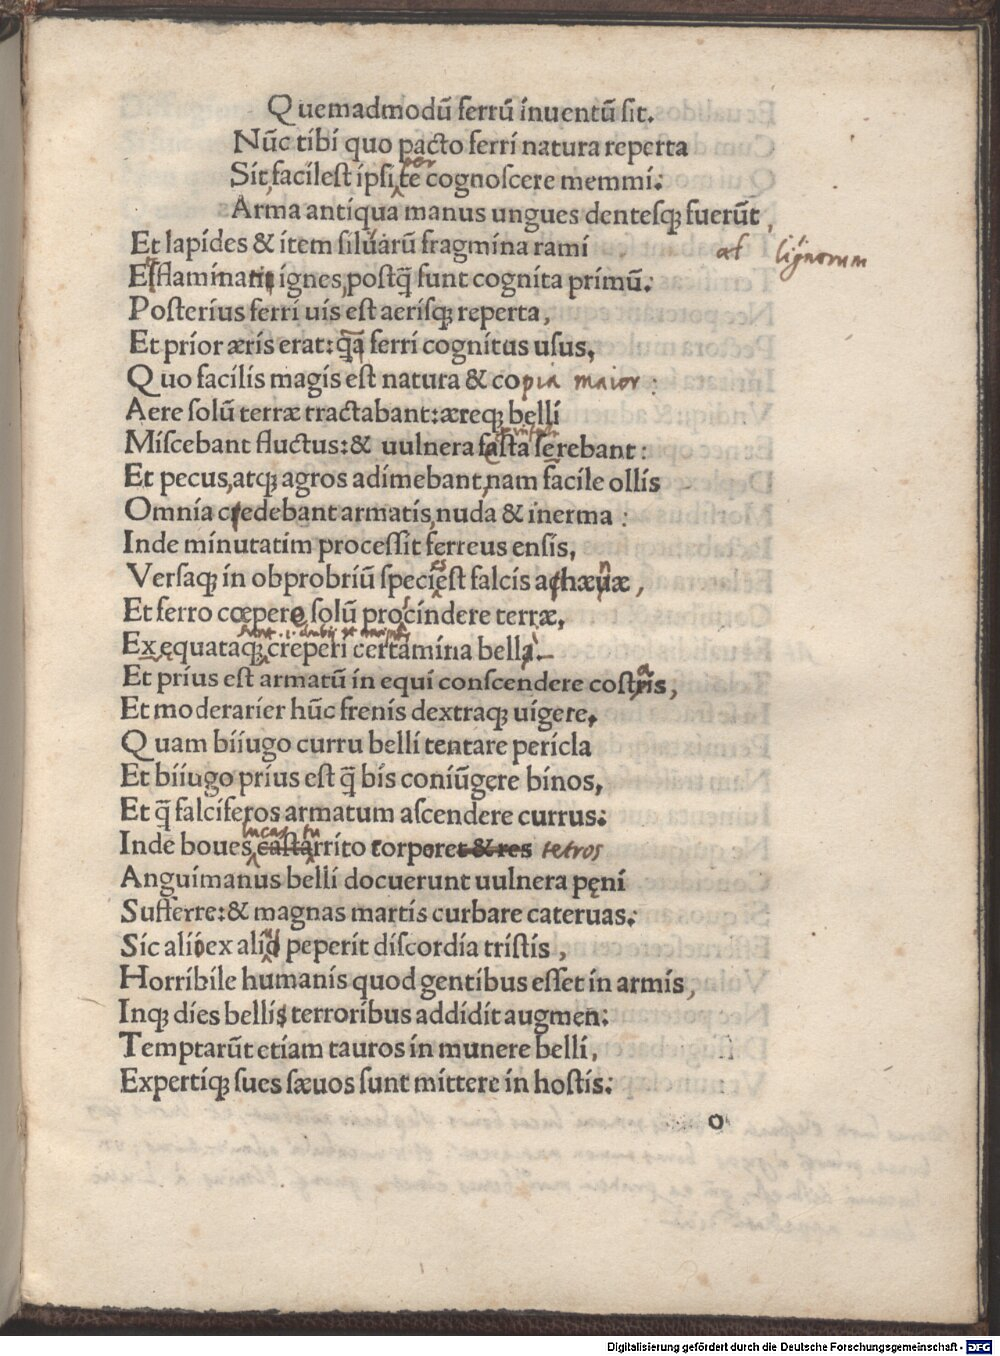 Quemadmodū ferrū inuentū sit.
Nūc tibi quo pacto ferri natura reperta
per
Sit facilest ipsi te cognoscere memmi:
Arma antiqua manus ungues dentesqꝫ fuerūt,
Et lapides & item siluarū fragmina rami
al' lignorum
Et flaminatis ignes, postq̄ sunt cognita primū:
Posterius ferri uis est aerisqꝫ reperta,
Et prior æris erat: q̄ā ferri cognitus usus,
Quo facilis magis est natura & copia maior :
Aere solū terræ tractabant: æreqꝫ belli
Miscebant fluctus: & uulnera fasta serebant:
Et pecus, atqꝫ agros adimebant, nam facile ollis
Omnia credebant armatis, nuda & inerma :
Inde minutatim processit ferreus ensis,
es n
Versaqꝫ in obprobriū speciest falcis achæuæ,
Et ferro cœpere solū procindere terræ,
Exęquataqꝫ creperi certamina bella.
Et prius est armatū in equi conscendere costris,
Et moderarier hūc frenis dextraqꝫ uigere,
Quam biiugo curru belli tentare pericla
Et biiugo prius est q̄ bis coniūgere binos,
Et q̄ falciferos armatum ascendere currus:
lucas tu
Inde boues castarrito torporet & res tetros
Anguimanus belli docuerunt uulnera pęni
Sufferre: & magnas martis curbare cateruas:
Sic alioex alio peperit discordia tristis,
Horribile humanis quod gentibus esset in armis,
Inqꝫ dies bellis terroribus addidit augmen:
Temptarūt etiam tauros in munere belli,
Expertiqꝫ sues sæuos sunt mittere in hostis:
o
Digitalisierung gefördert durch die Deutsche Forschungsgemeinschaft - DFG